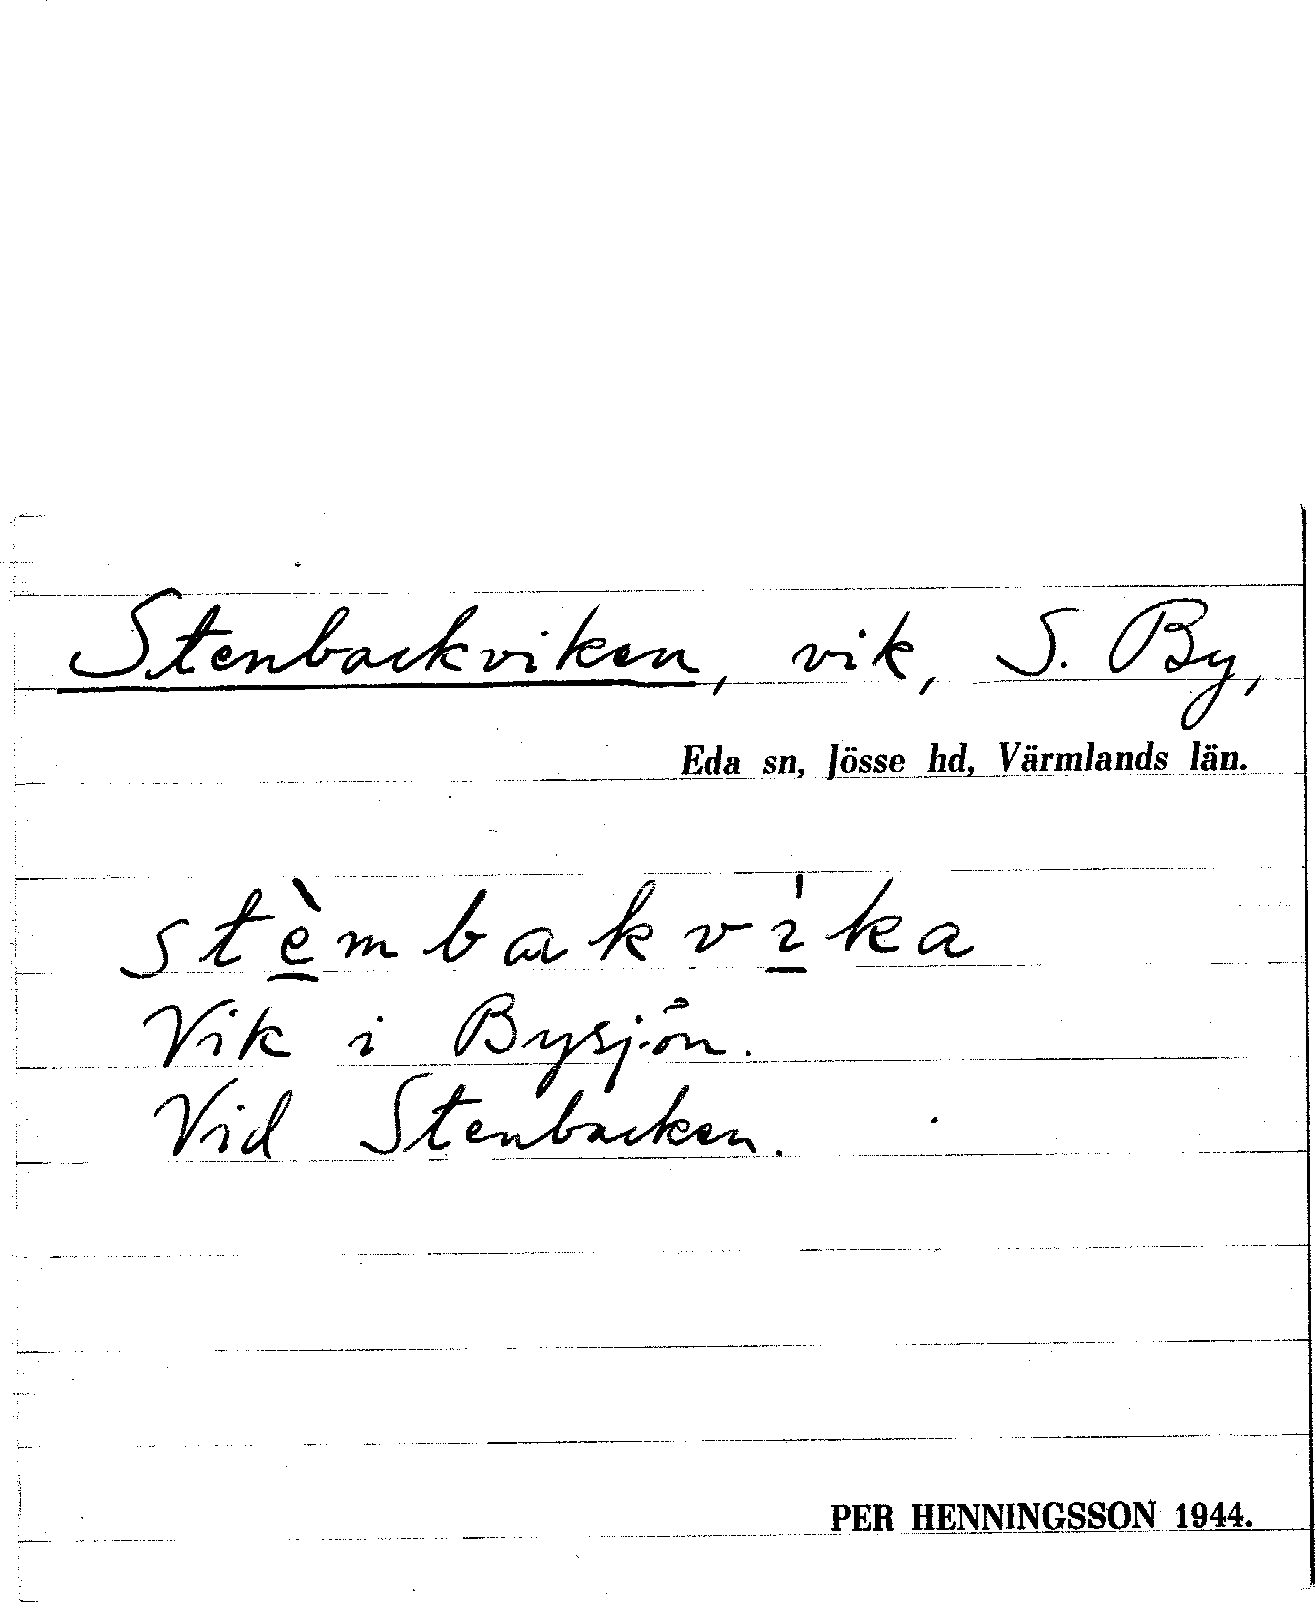 Stenbackviken, vik, S. By,
Eda sn, Jösse hd, Värmlands län.
stèmbakvìka
Vik i Bysjön.
Vid Stenbacken.
PER HENNINGSSON 1944.